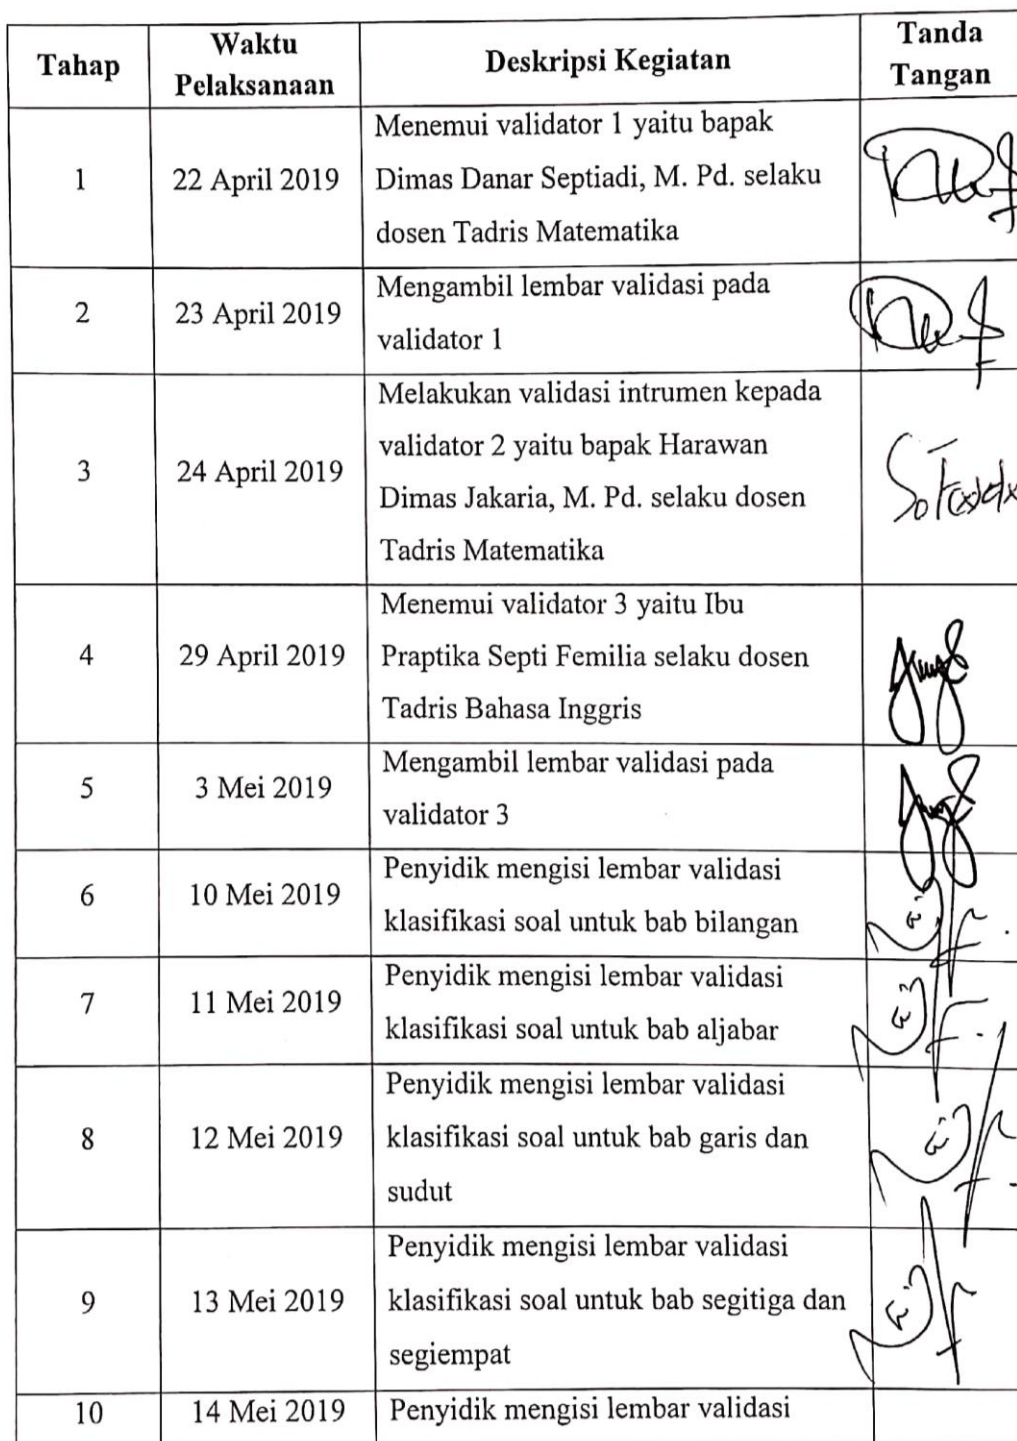 Tahap
Waktu
Pelaksanaan
Deskripsi Kegiatan
Tanda
Tangan
1
22 April 2019
Menemui validator 1 yaitu bapak
Dimas Danar Septiadi, M. Pd. selaku
dosen Tadris Matematika
2
23 April 2019
Mengambil lembar validasi pada
validator 1
3
24 April 2019
Melakukan validasi intrumen kepada
validator 2 yaitu bapak Harawan
Dimas Jakaria, M. Pd. selaku dosen
Tadris Matematika
4
29 April 2019
Menemui validator 3 yaitu Ibu
Praptika Septi Femilia selaku dosen
Tadris Bahasa Inggris
5
3 Mei 2019
Mengambil lembar validasi pada
validator 3
6
10 Mei 2019
Penyidik mengisi lembar validasi
klasifikasi soal untuk bab bilangan
7
11 Mei 2019
Penyidik mengisi lembar validasi
klasifikasi soal untuk bab aljabar
8
12 Mei 2019
Penyidik mengisi lembar validasi
klasifikasi soal untuk bab garis dan
sudut
9
13 Mei 2019
Penyidik mengisi lembar validasi
klasifikasi soal untuk bab segitiga dan
segiempat
10
14 Mei 2019
Penyidik mengisi lembar validasi